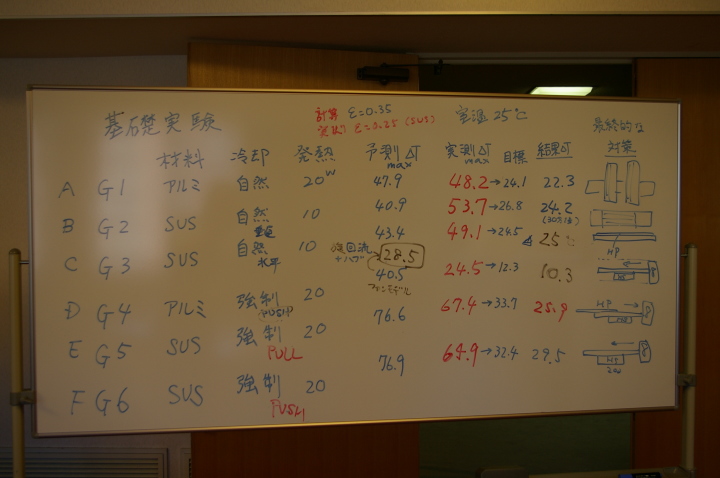 基礎実験
計算 ε=0.35
実測 ε=0.25 (SUS)
室温 25℃
材料 冷却 発熱 予測ΔT max 実測ΔT max 目標 結果ΔT 最終的な対策
A G1 アルミ 自然 20W 47.9 48.2→24.1 22.3
B G2 SUS 自然 垂直 10 40.9 53.7→26.8 24.2
C G3 SUS 自然 水平 10 43.4 49.1→24.5 25
28.5
D G4 アルミ 強制 PUSH 20 40.5 24.5→12.3 10.3
ファンモデル
E G5 SUS 強制 PULL 20 76.6 67.4→33.7 25.9
F G6 SUS 強制 PUSH 20 76.9 64.9→32.4 29.5
HP
HP
HP
20W